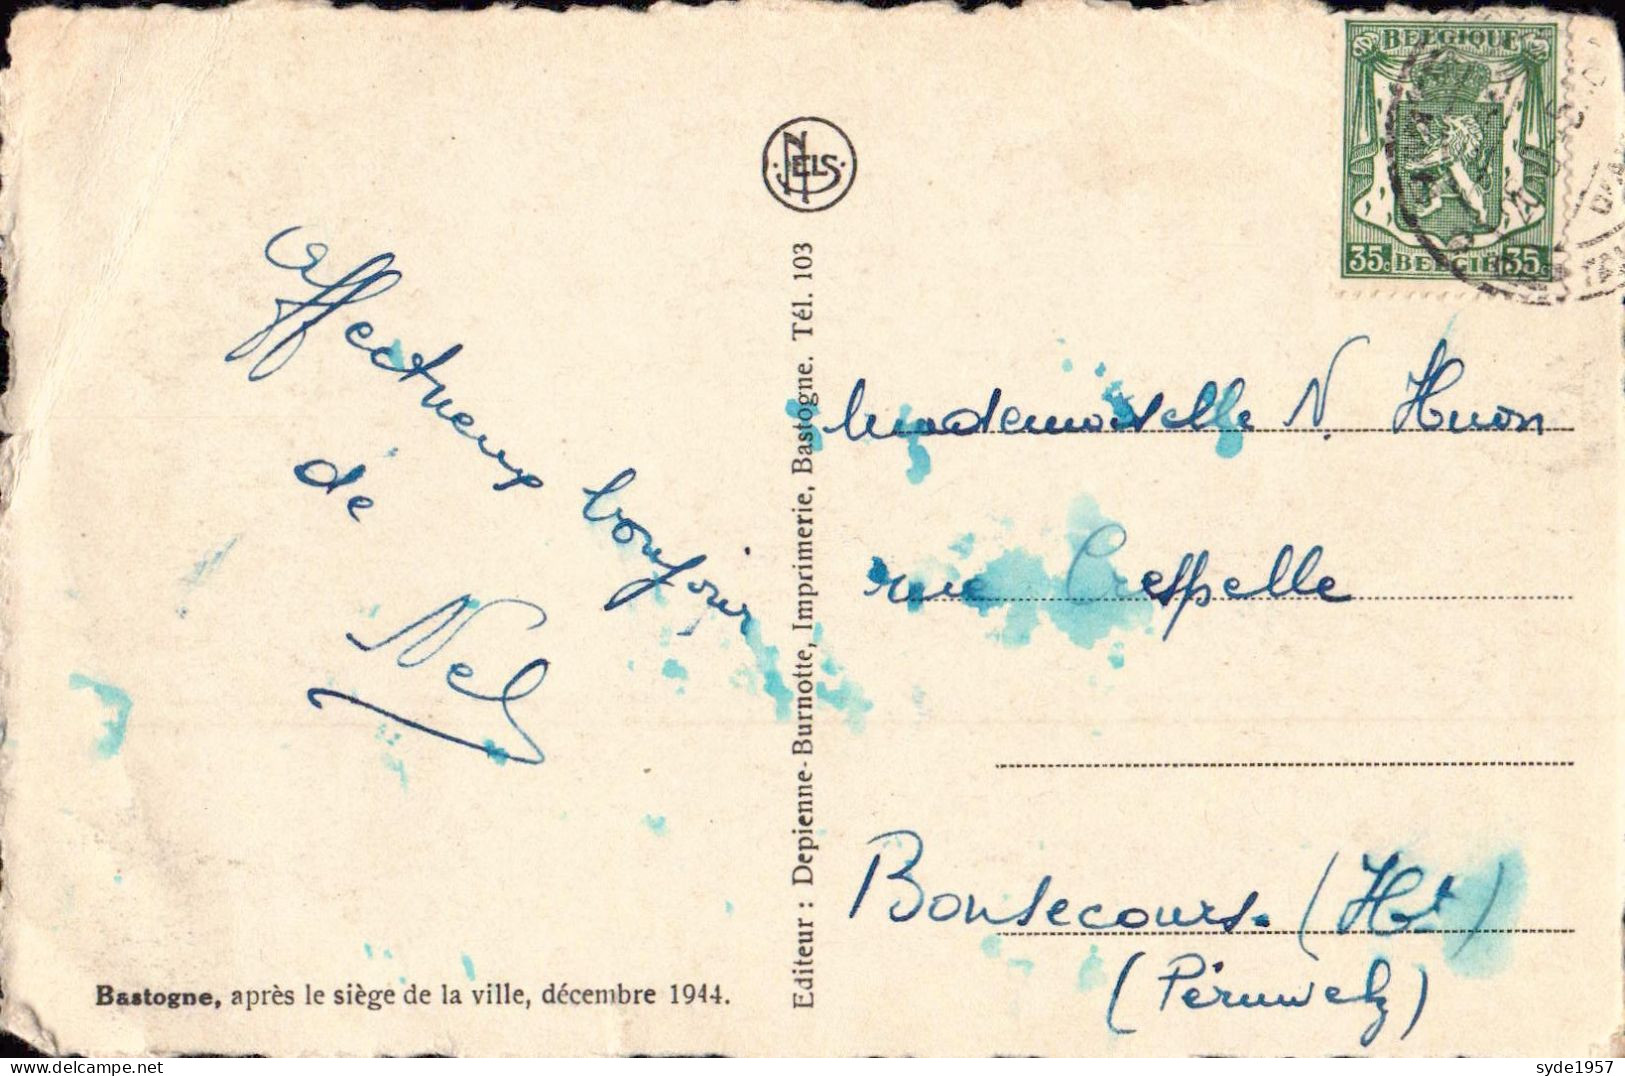 BELGIQUE
35c BELGIE 35c
NELS
Affectueux bonjour
de
Nel
Mademoiselle N. Huon
rue Crespelle
Bonsecours. (Ht)
(Péruwelz)
Editeur : Depienne-Burnotte, Imprimerie, Bastogne. Tél. 103
Bastogne, après le siège de la ville, décembre 1944.
syde1957